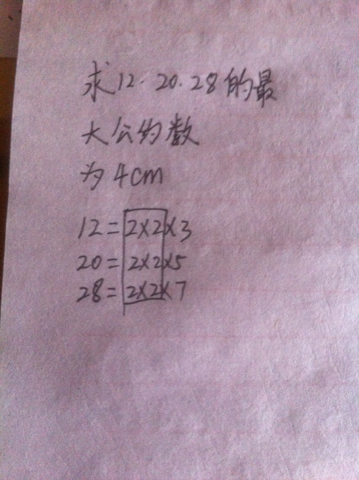 求12.20.28的最
大公约数
为4cm
12=2×2×3
20=2×2×5
28=2×2×7